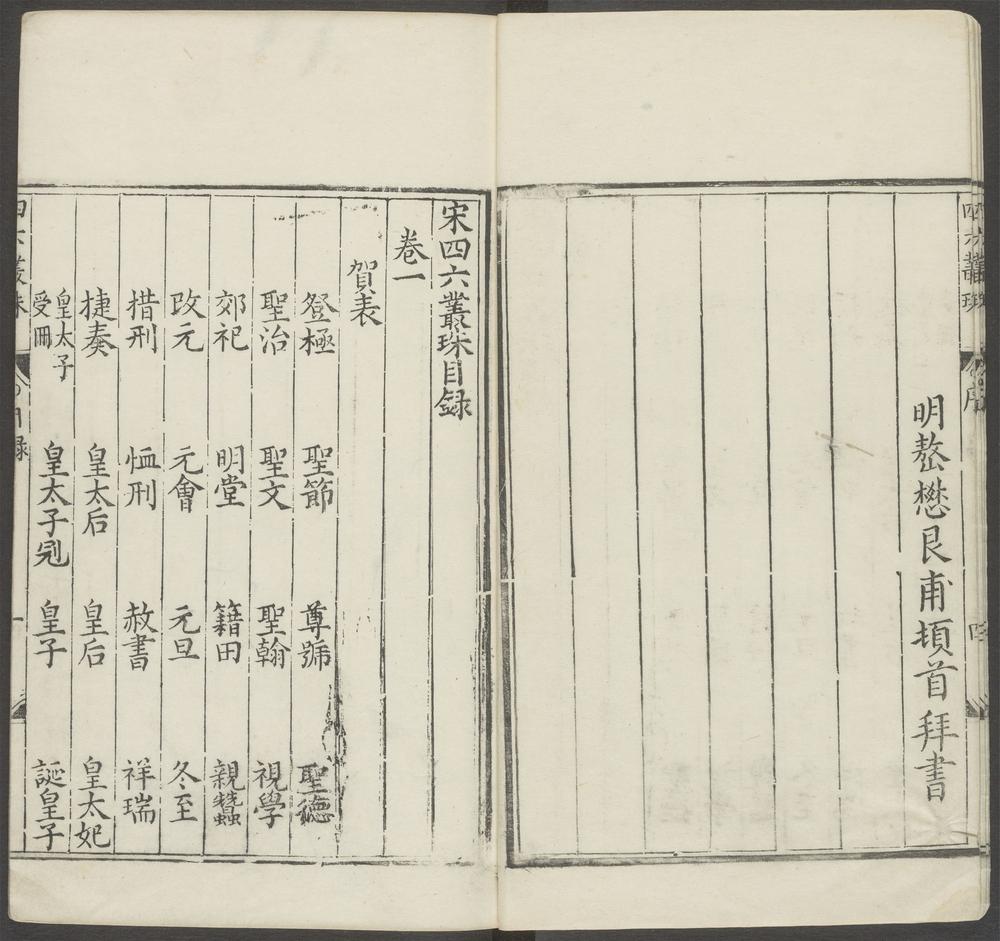 四六叢珠
序
四
明嶅懋良甫頓首拜書
宋四六叢珠目録
卷一
賀表
登極 聖節 尊號 聖德
聖治 聖文 聖翰 視學
郊祀 明堂 籍田 親蠶
改元 元會 元旦 冬至
措刑 恤刑 赦書 祥瑞
捷奏 皇太后 皇后 皇太妃
皇太子受冊 皇太子 皇子 誕皇子
四六叢珠
目録
一